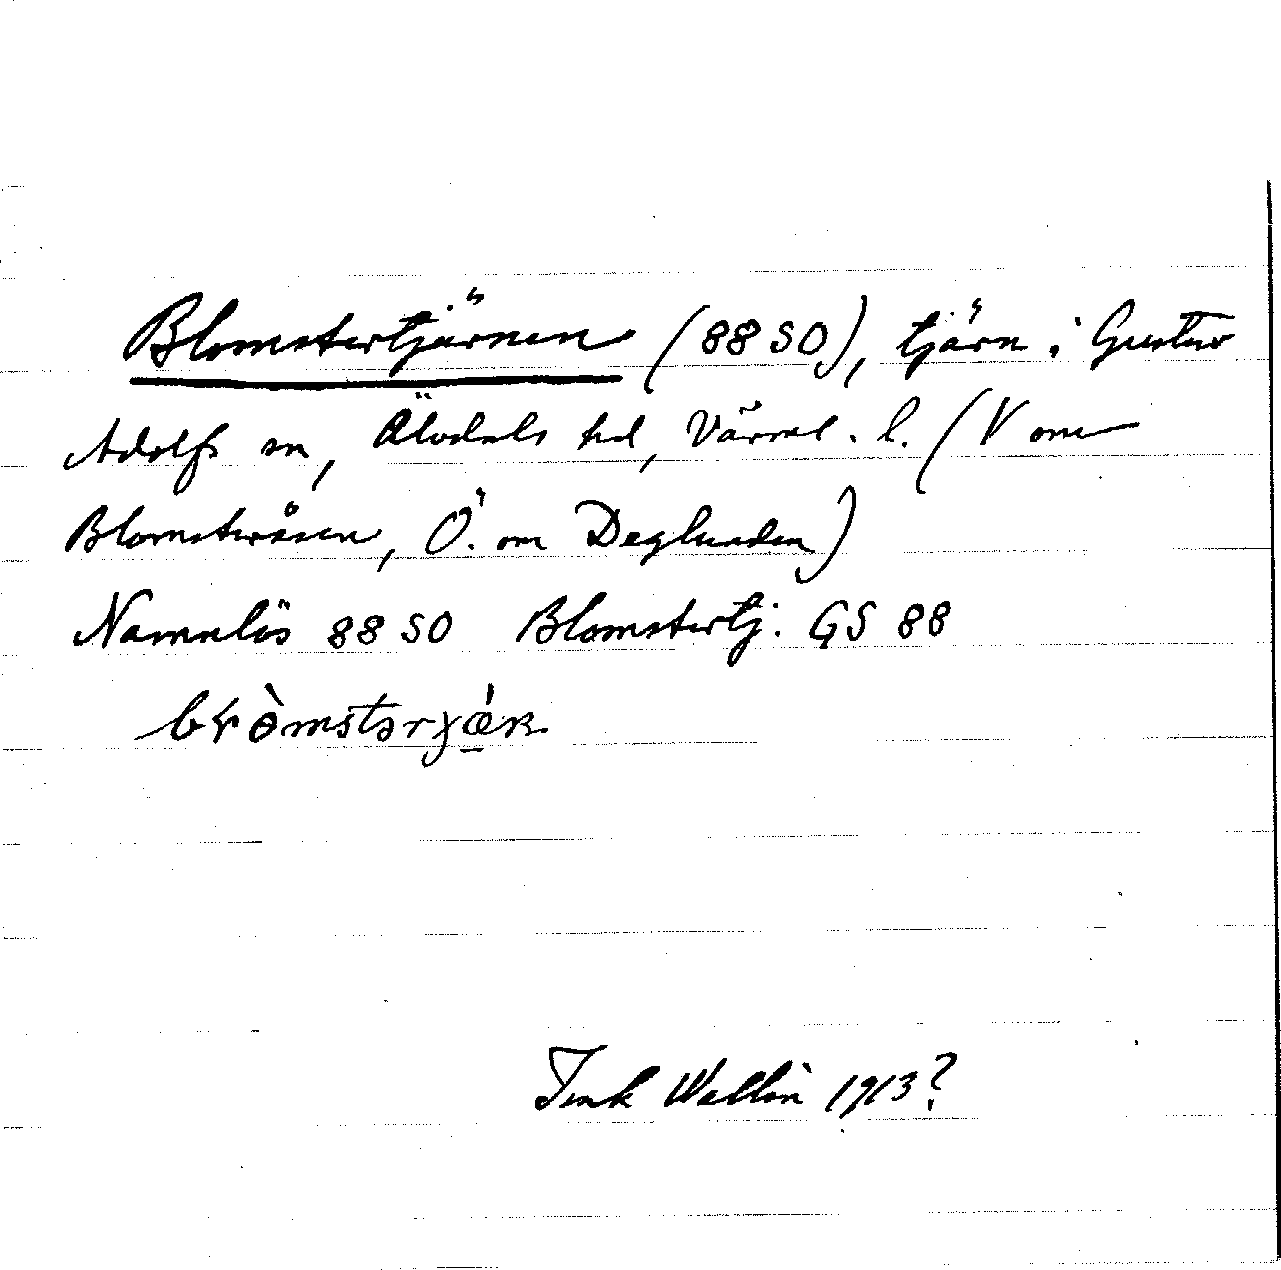 Blomstertjärnen (88 SO), tjärn i Gustav
Adolfs sn, Älvdals hd, Värml. l. (V om
Blomsteråsen, Ö. om Deglunden)
Namnlös 88 SO Blomstertj. GS 88
Wallin 1913?